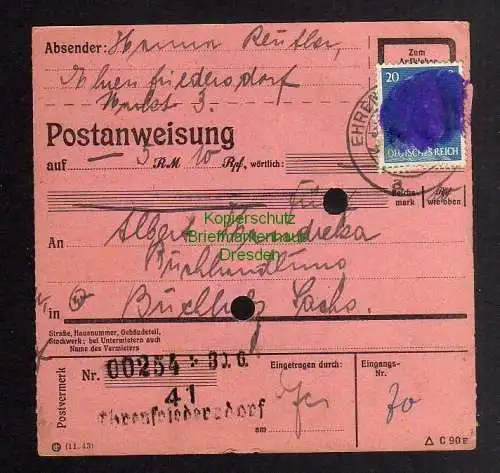 Absender: Hanna Reuther,
Ehrenfriedersdorf
Markt 3.
Zum
Aufkleben
20
DEUTSCHES REICH
EHREN
a
Postanweisung
auf — 5 RM 10 Rpf, wörtlich:
Reichs-
mark
Rpf
wie oben
Kopierschutz
Briefmarkenhaus
Dresden
An Albert
Buchhandlung
in Buchholz Sachs.
Straße, Hausnummer, Gebäudeteil,
Stockwerk; bei Untermietern auch
Name des Vermieters
Postvermerk
Nr. 00254 * 30.6.
41
Ehrenfriedersdorf
am
Eingetragen durch:
Eingangs-
Nr.
70
(11. 43)
△ C 90 E